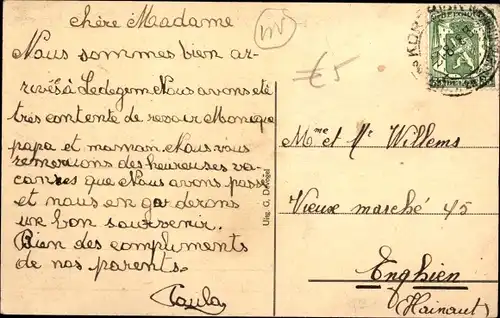 chère Madame
Nous sommes bien ar-
rivés à Ledegem Nous avons été
très contente de revoir Monique
papa et maman. Nous vous
remercions des heureuses va-
cances que Nous avons passé
et nous en garderons
une bon souvenir.
Bien des compliments
de nos parents.
Paula
nv
€5
Uitg. G. Devogel
Mme et Mr Willems
Vieux marché 45
Enghien
(Hainaut)